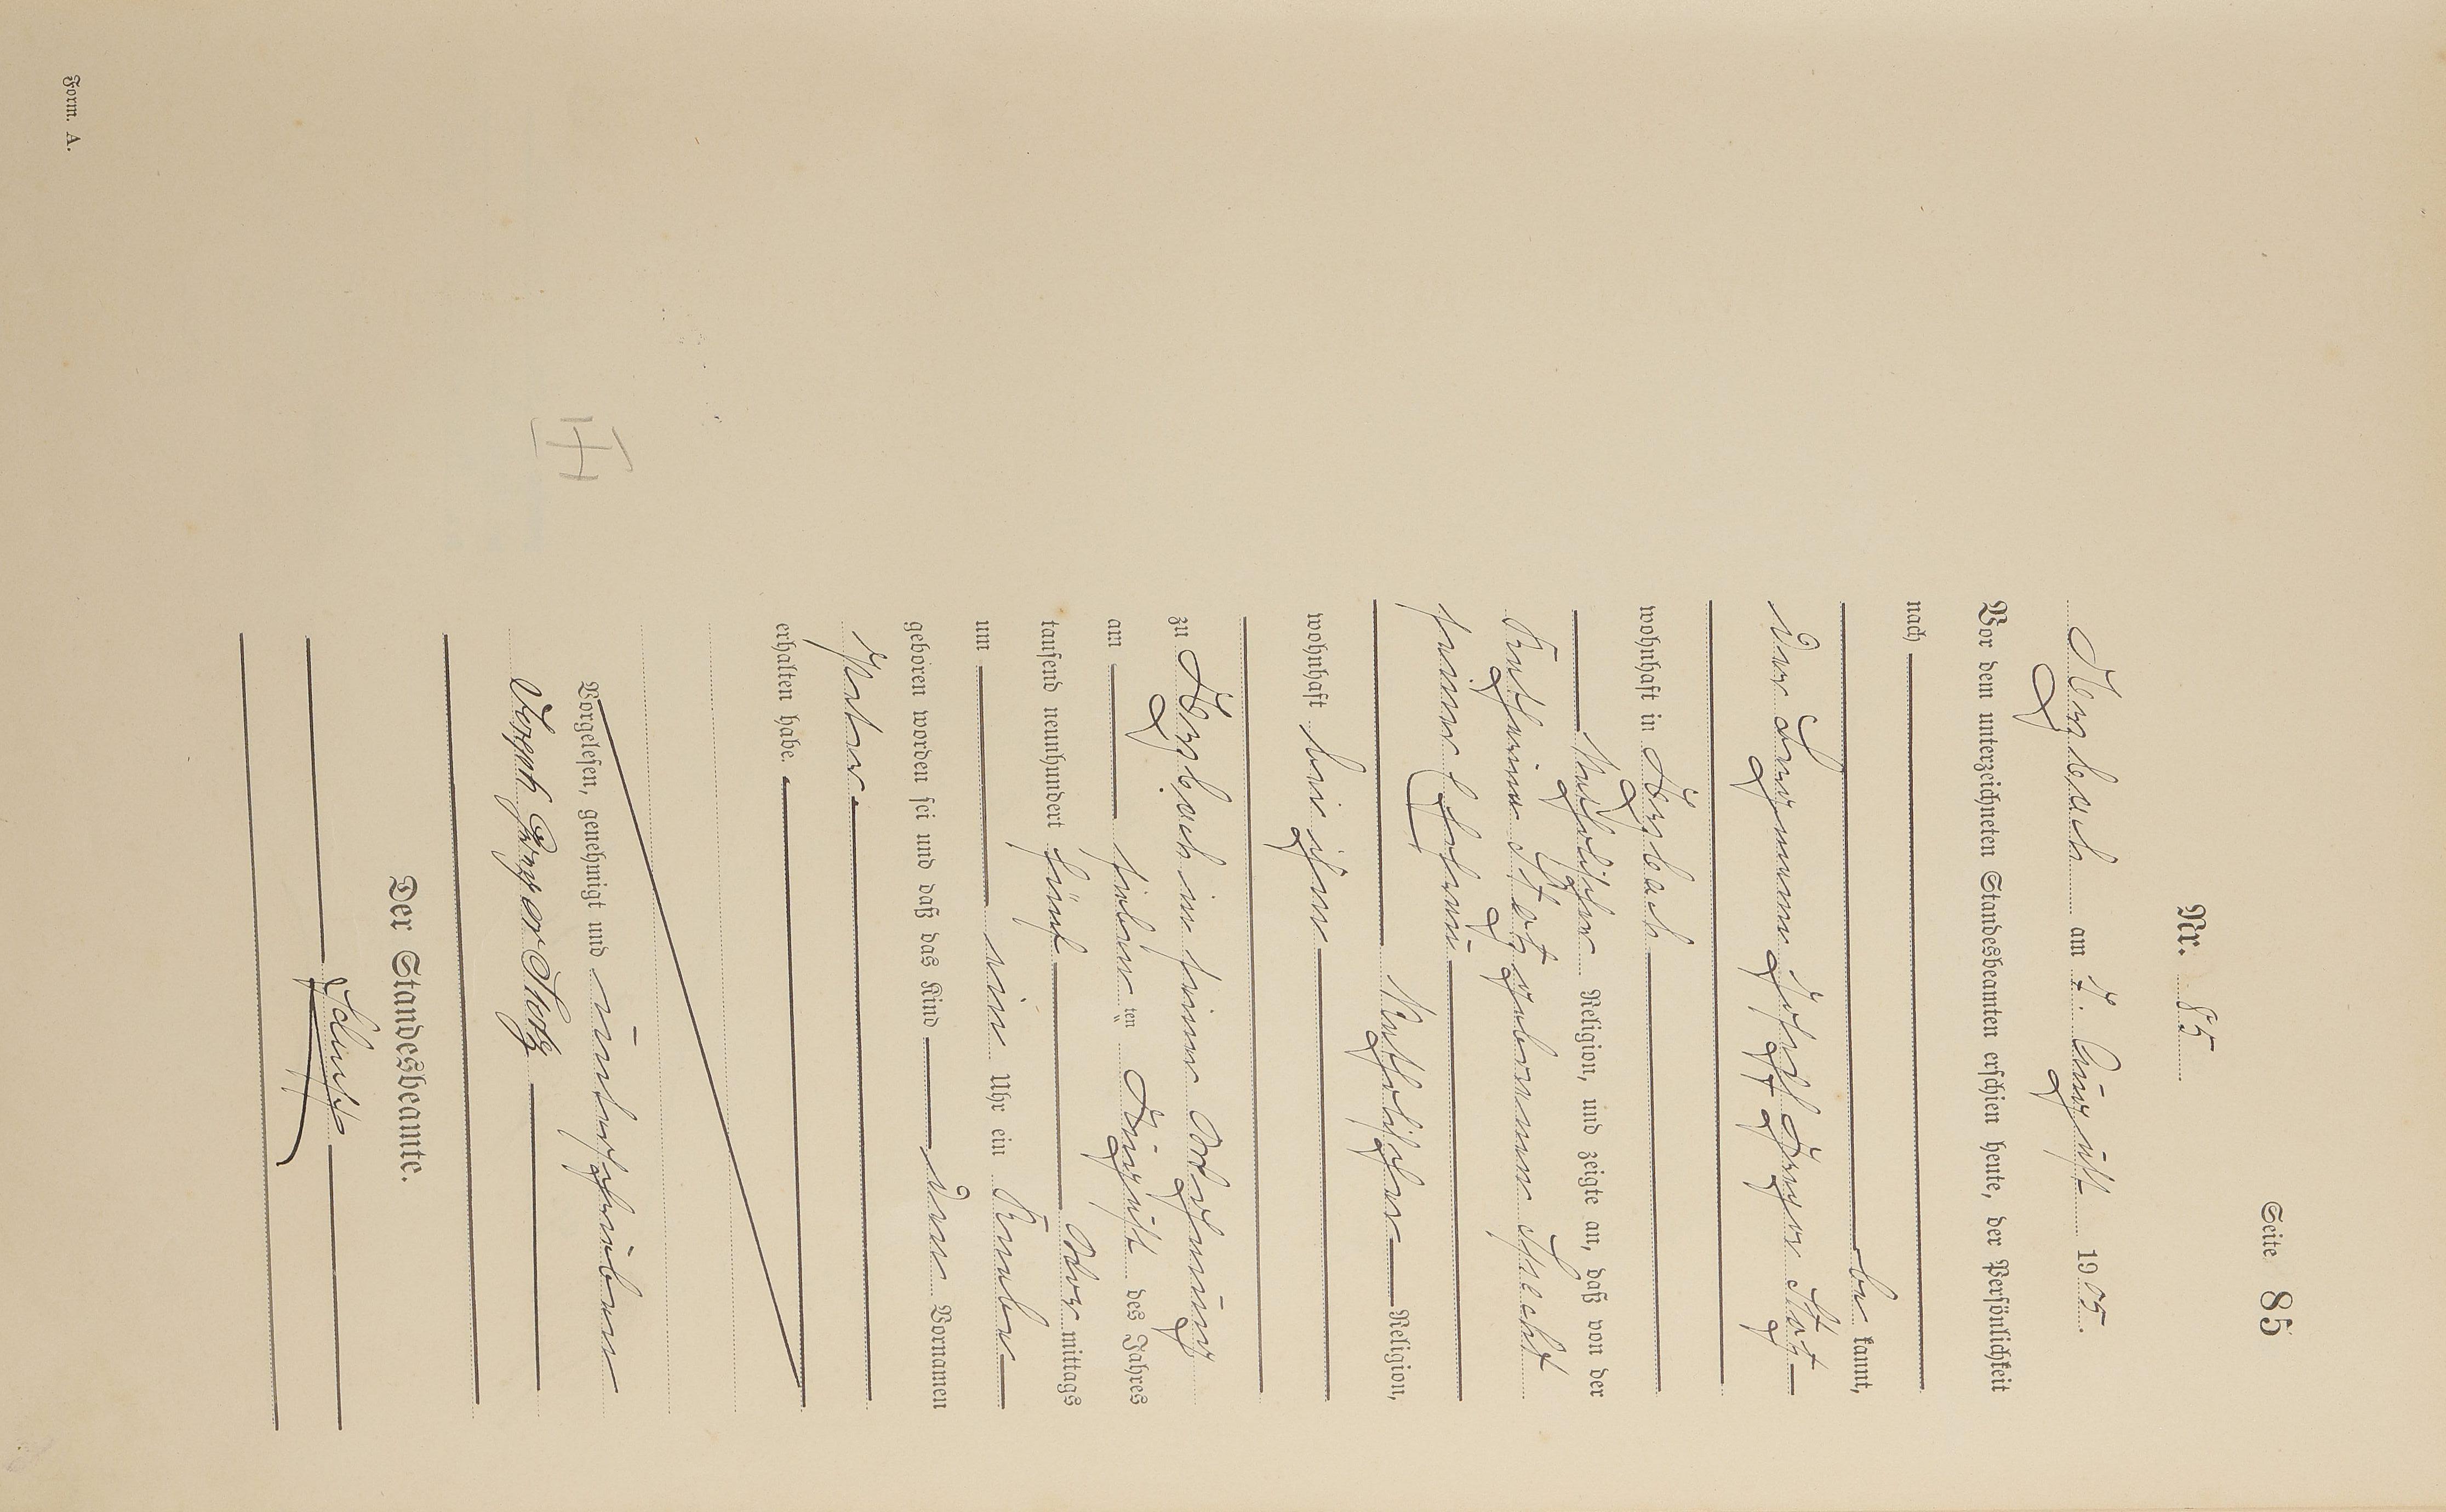 Seite 85
Nr. 85
Herbach am 7. August 1905.
Vor dem unterzeichneten Standesbeamten erschien heute, der Persönlichkeit
nach
be kannt,
Der Bergmann Joseph Gregor Stotz
wohnhaft in Herbach
katholischer Religion, und zeigte an, daß von der
Katharina Stotz geborenen Specht
seiner Ehefrau
katholischer Religion,
wohnhaft bei ihm
zu Herbach in seiner Wohnung
am sieben ten August des Jahres
tausend neunhundert fünf Vor mittags
um ein Uhr ein Knabe
geboren worden sei und daß das Kind den Vornamen
Peter
erhalten habe.
Vorgelesen, genehmigt und unterschrieben
Joseph Gregor Stotz
Der Standesbeamte.
Form. A.